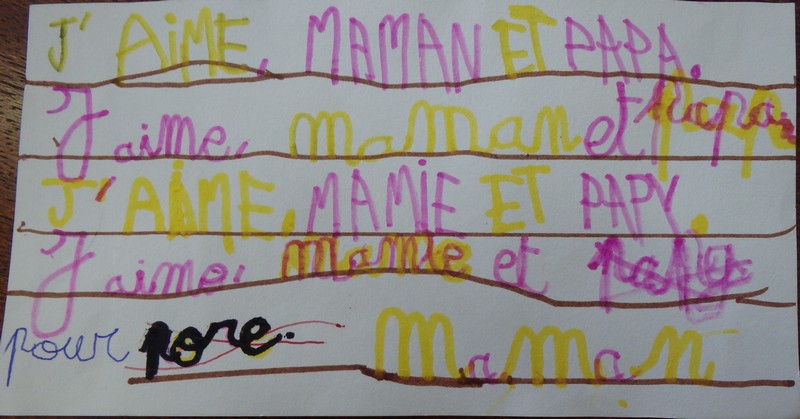 J' AiME, MAMAN ET PAPA.
J'aime, maman et papa.
J'AiME, MAMiE ET PAPY.
J'aime, mamie et papy
pour pore. Maman